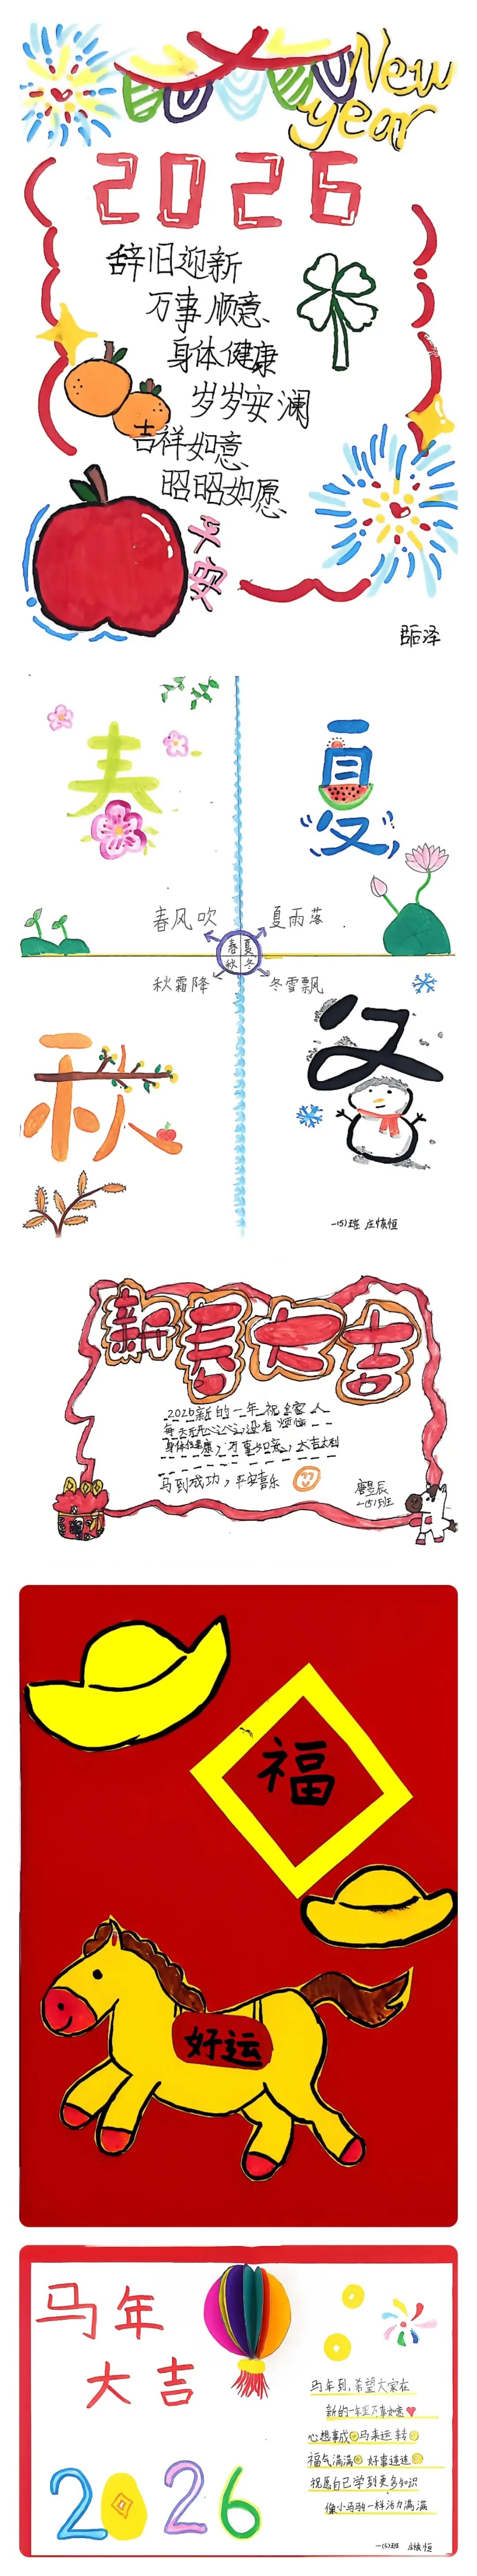 New
year
2026
辞旧迎新
万事顺意
身体健康
岁岁安澜
吉祥如意
昭昭如愿
平安
春
夏
春风吹
夏雨落
春夏
秋冬
秋霜降
冬雪飘
秋
冬
一(5)班
新春大吉
2026新的一年祝全家人
每天开开心心，没有烦恼
身体健康，万事如意，大吉大利
马到成功，平安喜乐
一(5)班
福
好运
马年
大吉
2026
马年到，希望大家在
新的一年里万事如意
心想事成 马来运转
福气满满 好事连连
祝愿自己学到更多知识
像小马驹一样活力满满
一(5)班